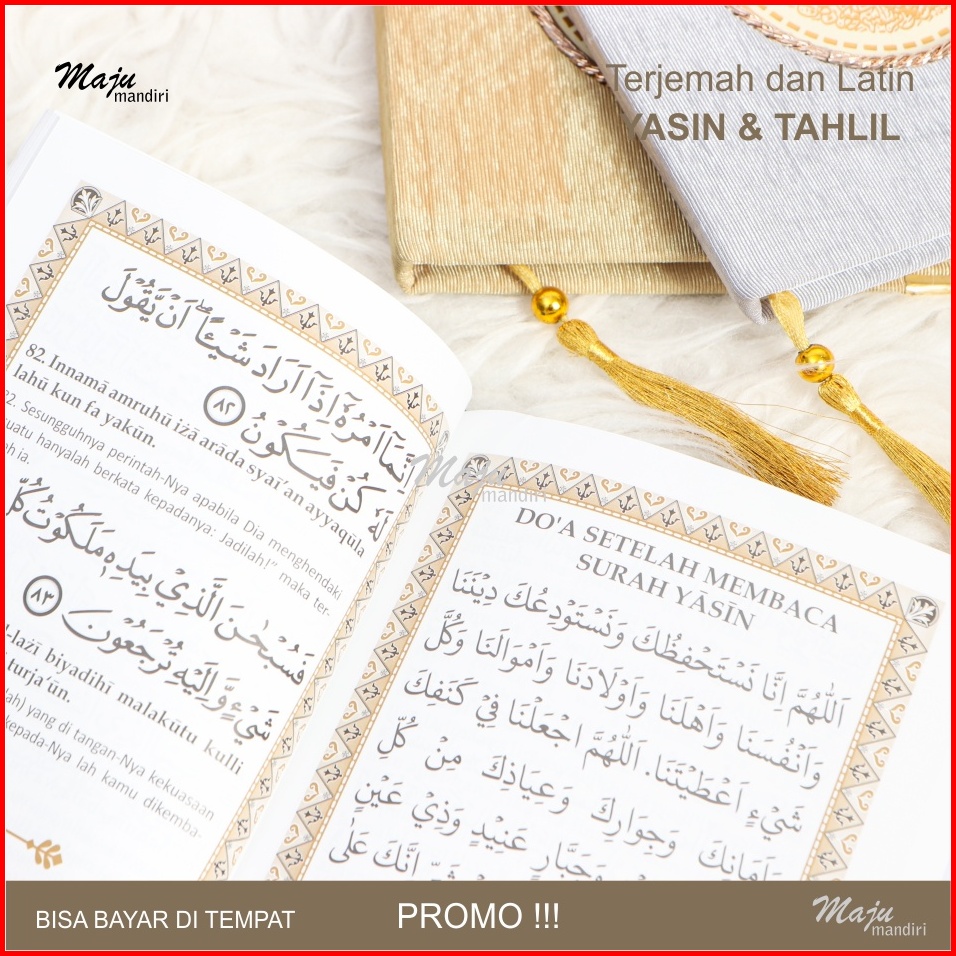 Maju
mandiri
Terjemah dan Latin
YASIN & TAHLIL
اِنَّمَآ اَمْرُهٗٓ اِذَآ اَرَادَ شَيْـًٔاۖ اَنْ يَّقُوْلَ
لَهٗ كُنْ فَيَكُوْنُ ٨٢
82. Innamā amruhū iżā arāda syai'an ayyaqūla
lahū kun fa yakūn.
82. Sesungguhnya perintah-Nya apabila Dia menghendaki
suatu hanyalah berkata kepadanya: Jadilah!" maka ter-
ah ia.
فَسُبْحٰنَ الَّذِيْ بِيَدِهٖ مَلَكُوْتُ كُلِّ
شَيْءٍ وَّاِلَيْهِ تُرْجَعُوْنَ ٨٣
l-lażī biyadihī malakūtu kulli
turja'ūn.
lah) yang di tangan-Nya kekuasaan
kepada-Nya lah kamu dikemba-
Maju
mandiri
DO'A SETELAH MEMBACA
SURAH YĀSĪN
اَللّٰهُمَّ اِنَّا نَسْتَحْفِظُكَ وَنَسْتَوْدِعُكَ دِيْنَنَا
وَاَنْفُسَنَا وَاَهْلَنَا وَاَوْلَادَنَا وَاَمْوَالَنَا وَكُلَّ
شَيْءٍ اَعْطَيْتَنَا. اَللّٰهُمَّ اجْعَلْنَا فِيْ كَنَفِكَ
وَاَمَانِكَ وَجِوَارِكَ وَعِيَاذِكَ مِنْ كُلِّ
وَجَبَّارٍ عَنِيْدٍ وَذِيْ عَيْنٍ
اِنَّكَ عَلٰى
BISA BAYAR DI TEMPAT
PROMO !!!
Maju
mandiri